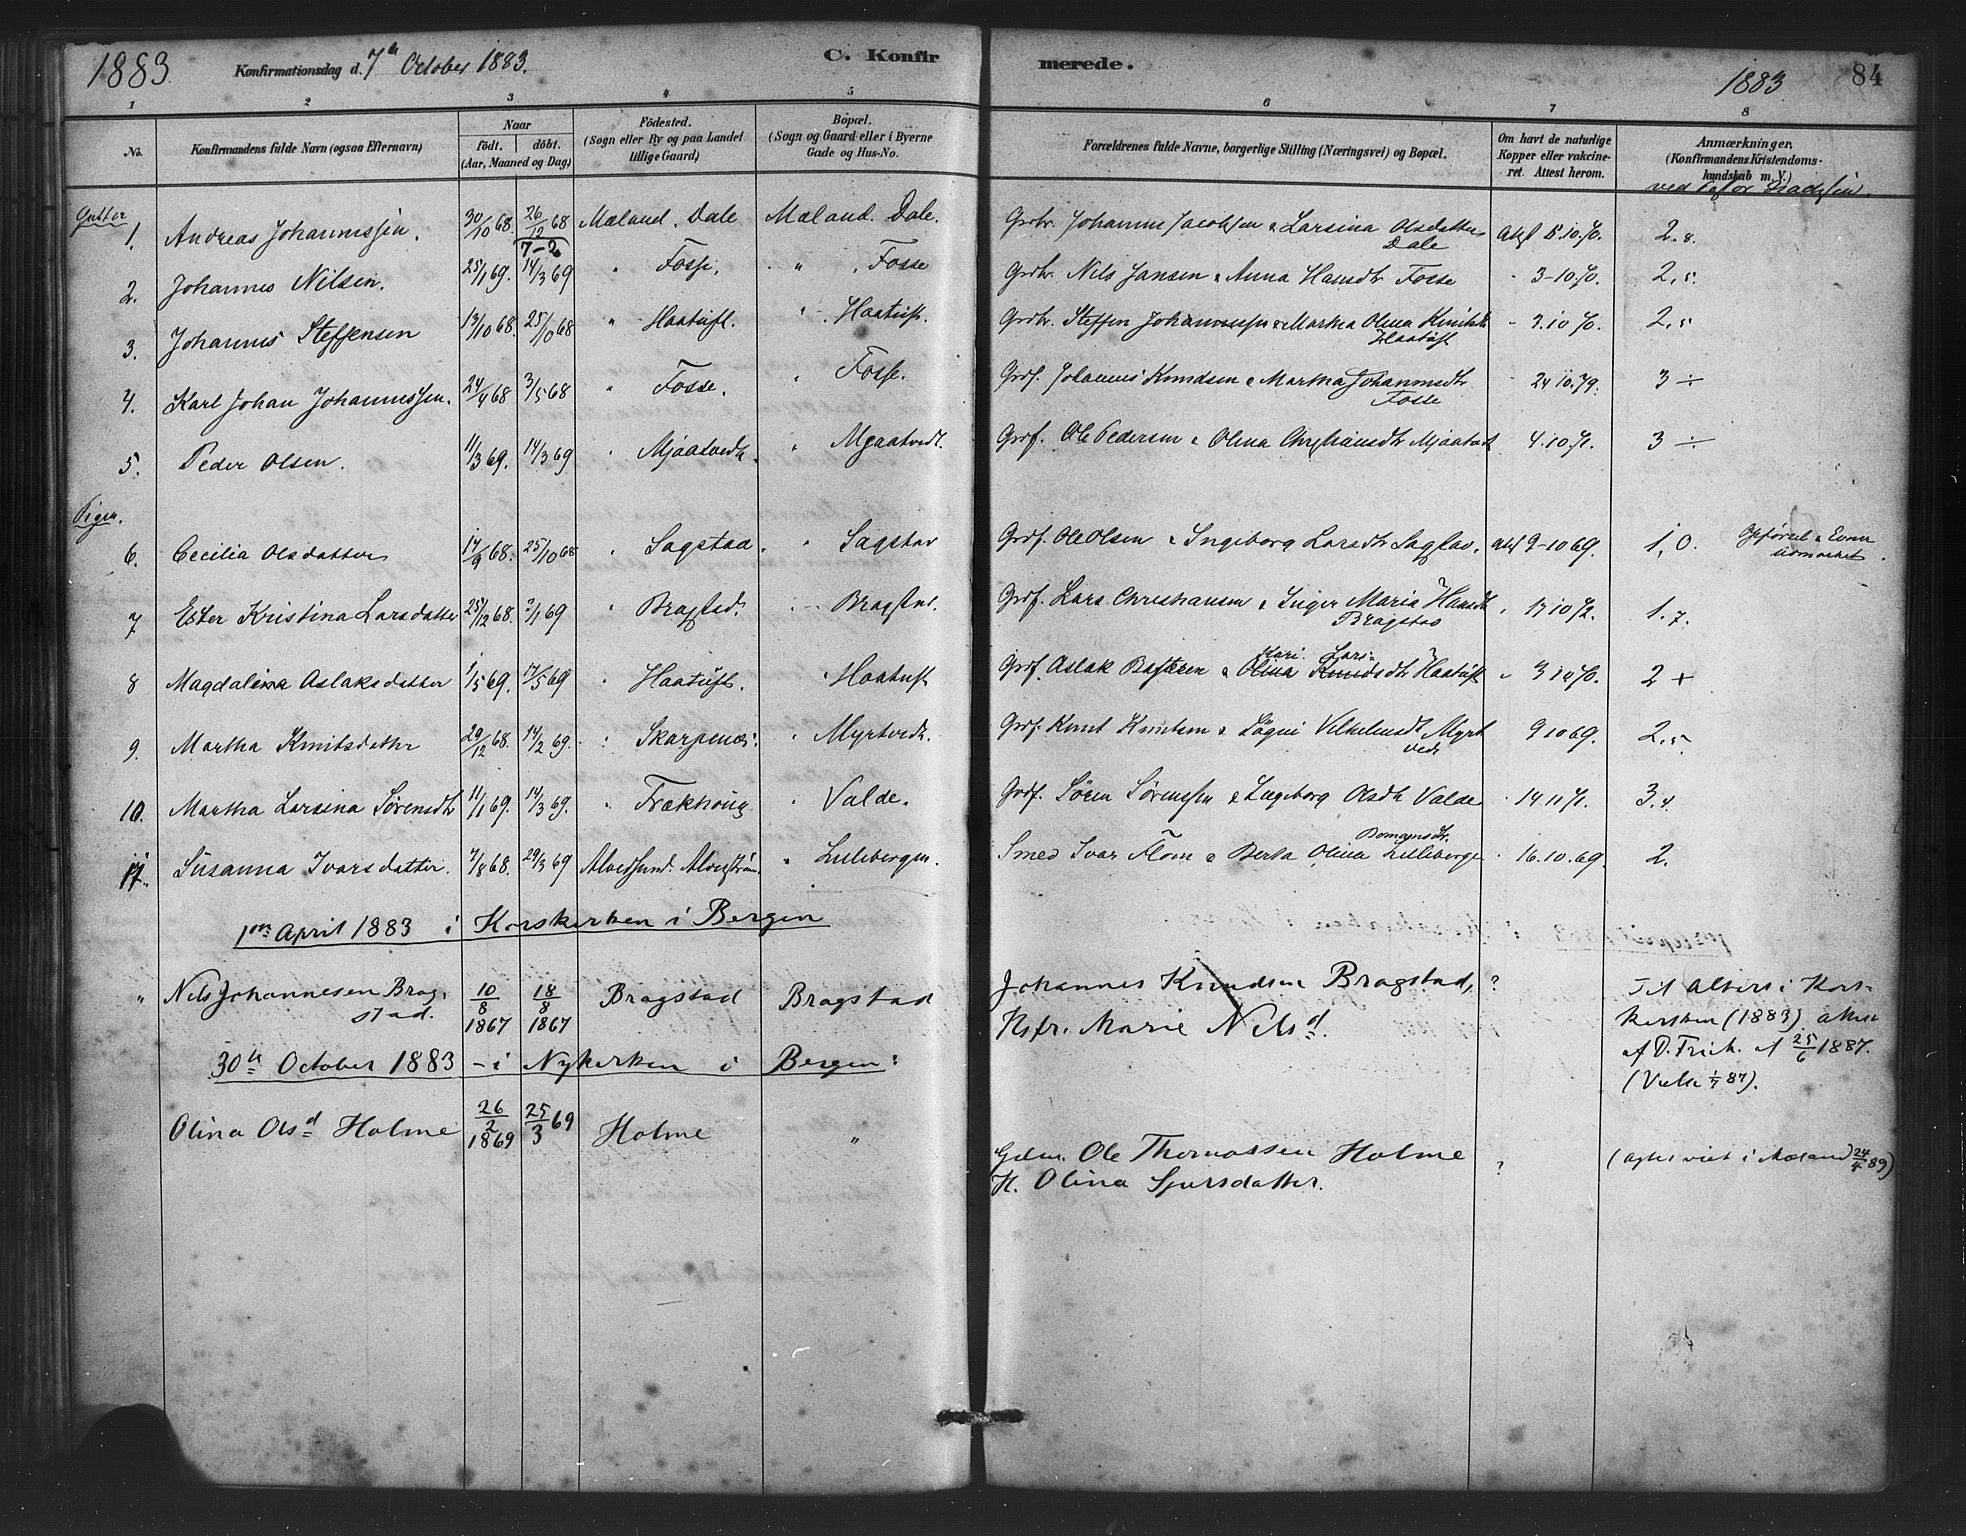 1883. Konfirmationsdag d. 7de October 1883. C. Konfirmerede. 1883 84
1 2 3 4 5 6 7 8
No. Konfirmandens fulde Navn (ogsaa Efternavn) Naar födt. döbt. (Aar, Maaned og Dag) Födested. (Sogn eller By og paa Landet tillige Gaard) Bopæl. (Sogn og Gaard eller i Byerne Gade og Hus-No. Forældrenes fulde Navne, borgerlige Stilling (Næringsvei) og Bopæl. Om havt de naturlige Kopper eller vakcineret. Attest herom. Anmærkninger. (Konfirmandens Kristendomskundskab m. V.)
Gutter
1. Andreas Johannessen. 30/10 68. 26/12 68 7-2 Mæland. Dale Mæland. Dale. Grbr. Johannes Jacobsen & Larsina Olsdatter Dale Att 5.10.70. 2.8.
2. Johannes Nilsen. 25/1 69. 14/3 69 " Fosse. " Fosse Grdbr. Nils Jansen & Anna Hansdtr Fosse - 3-10.70. 2,5.
3. Johannes Steffensen 13/10 68. 25/10 68 " Haatuft. " Haatuft. Grdbr. Steffen Johannessen & Martha Olina Knutsdtr Haatuft - 3.10 70. 2,5
4. Karl Johan Johannessen. 24/4 68 3/5 68 " Fosse. " Fosse. Grdf. Johannes Knudsen & Martha Johannesdtr Fosse - 24 10.79. 3 ÷
5. Peder Olsen. 11/3 69. 14/3 69 " Mjaatvedt. " Mjaatvedt. Grdf. Ole Pedersen & Olina Christiansdtr Mjaatvedt 4.10.71. 3 ÷
Piger.
6. Cecilia Olsdatter 17/9 68. 25/10 68 " Sagstad. " Sagstad Grdf. Ole Olsen & Ingeborg Larsdtr Sagstad. att 9-10 69. 1,0. Opførsel & Evner udmærket.
7 Ester Kristina Larsdatter 25/12 68. 3/1 69 " Bragstad. " Bragstad. Grdf. Lars Christiansen & Inger Maria Hansdtr Bragstad " 17 10 72. 1.7.
8 Magdalena Aslaksdatter 1/5 69. 17/5 69 " Haatuft. " Haatuft Grdf. Aslak Bastesen & Kari Lars- Olina Knudsdtr Haatuft " 3 10 70. 2 +
9. Martha Knutsdatter 29/12 68. 14/2 69. " Skarpenes. " Myrtvedt. Grdf. Knut Knutsen & Vilhelmsdt Myrtvedt 9 10 69. 2,5.
10. Martha Larsina Sørensdtr 11/1 69. 14/3 69. " Trækhoug " Valde. Grdf. Søren Sørenssen & Ingeborg Olsdtr Valde " 14 11 71. 3.4.
11. Susanna Ivarsdatter. 7/8 68. 29/3 69 Alversund. " Lillebergen. Smed Ivar Flom & Berta Olina Lilleberge " 16.10.69. 2.
1ste April 1883 i Korskirken i Bergen
" Nils Johannesen Bragstad. 10/8 1867 18/8 1867 Bragstad Bragstad Johannes Knudsen Bragstad, Hsfr. Marie Nelsd. ? Til Alters i Korskirken (1883) attest af D. Frich. af 25/6 1887. (Viede 1/7 87).
30te October 1883 - i Nykirken i Bergen:
Olina Olsd Holme 26/2 1869 25/3 69 Holme " Gdm. Ole Thomassen Holme H. Olina Sjursdatter. ? (Agtes viet i Mæland 24/4 89)